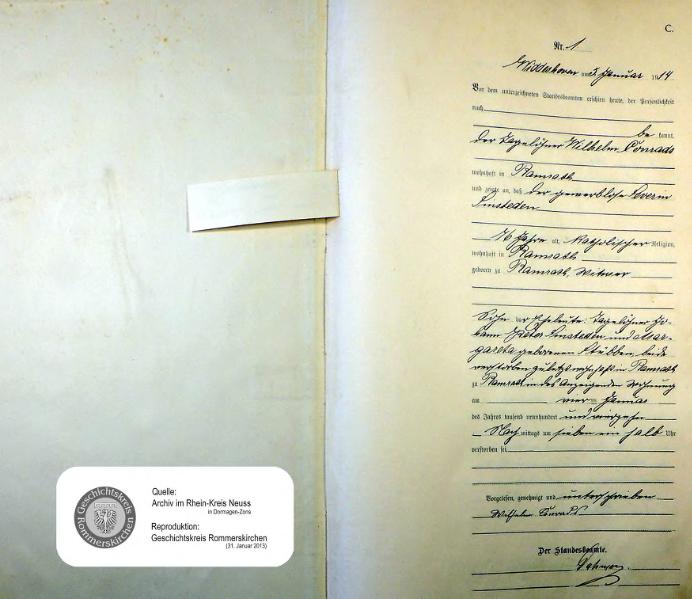 C.
Nr. 1
am 5. Januar 1914
Vor dem unterzeichneten Standesbeamten erschien heute, der Persönlichkeit
nach
be kannt,
der Tagelöhner Wilhelm Conrads
wohnhaft in Ramrath
und zeigte an, daß der gewerblose Severin
Linsteden
76 Jahre alt, katholischer Religion,
wohnhaft in Ramrath
geboren zu Ramrath, Witwer
Sohn der Eheleute: Tagelöhner Jo-
hann Peter Linsteden und Mar-
gareta geborenen Stübben, beide
verstorben zuletzt wohnhaft in Ramrath
zu Ramrath in des Anzeigenden Wohnung
am vier ten Januar
des Jahres tausend neunhundert und vierzehn
Nach mittags um sieben ein halb Uhr
verstorben sei.
Vorgelesen, genehmigt und unterschrieben
Wilhelm Conrads
Der Standesbeamte.
Geschichtskreis
Rommerskirchen
Quelle:
Archiv im Rhein-Kreis Neuss
in Dormagen-Zons
Reproduktion:
Geschichtskreis Rommerskirchen
(31. Januar 2013)